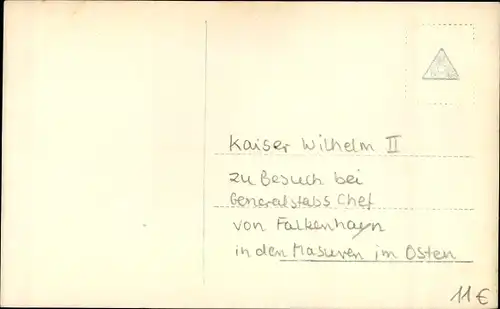 Kaiser Wilhelm II
zu Besuch bei
Generalstabs Chef
von Falkenhayn
in den Masuren im Osten
11 €